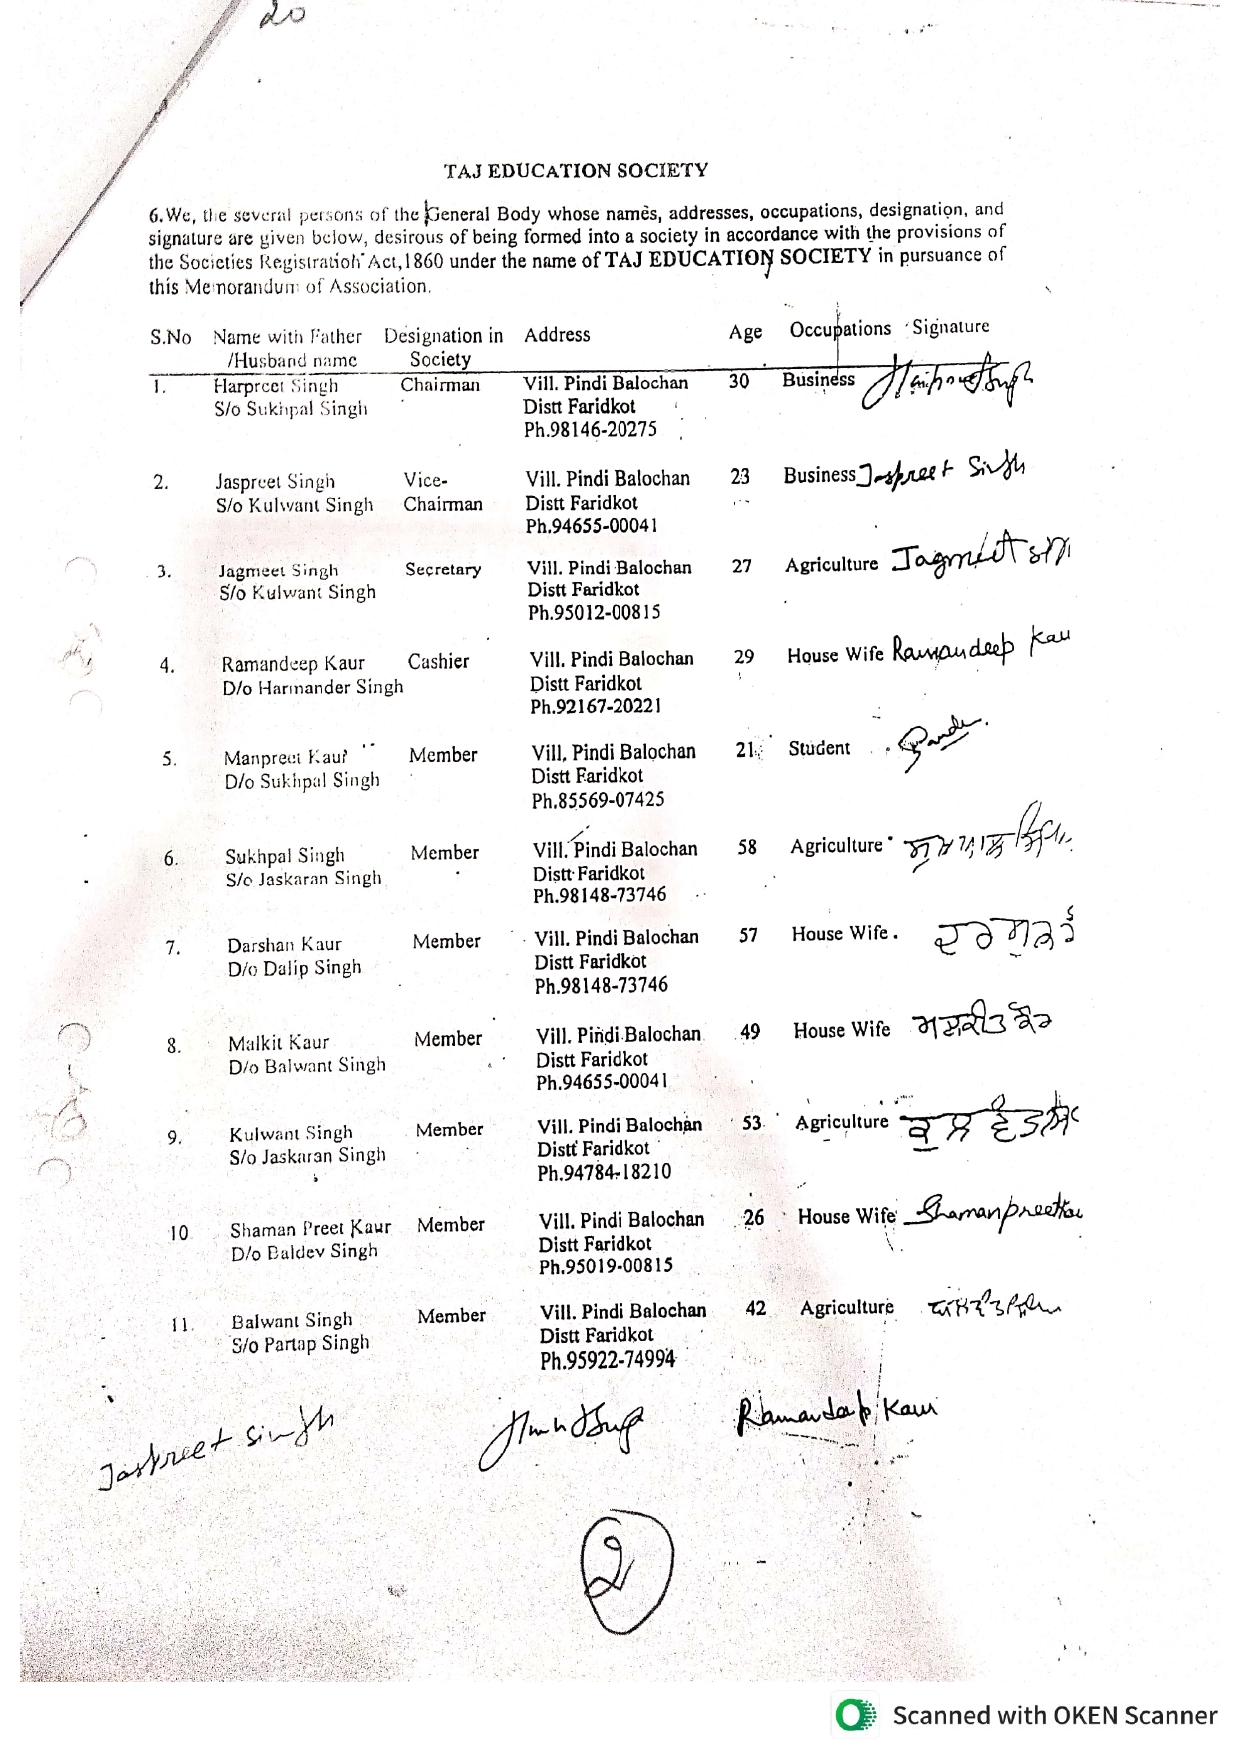 20
TAJ EDUCATION SOCIETY
6.We, the several persons of the General Body whose names, addresses, occupations, designation, and
signature are given below, desirous of being formed into a society in accordance with the provisions of
the Societies Registration Act,1860 under the name of TAJ EDUCATION SOCIETY in pursuance of
this Memorandum of Association.
S.No Name with Father Designation in Address Age Occupations Signature
/Husband name Society
1. Harpreet Singh Chairman Vill. Pindi Balochan 30 Business
S/o Sukhpal Singh Distt Faridkot
Ph.98146-20275
2. Jaspreet Singh Vice- Vill. Pindi Balochan 23 Business Jaspreet Singh
S/o Kulwant Singh Chairman Distt Faridkot
Ph.94655-00041
3. Jagmeet Singh Secretary Vill. Pindi Balochan 27 Agriculture Jagmeet
S/o Kulwant Singh Distt Faridkot
Ph.95012-00815
4. Ramandeep Kaur Cashier Vill. Pindi Balochan 29 House Wife Ramandeep Kau
D/o Harmander Singh Distt Faridkot
Ph.92167-20221
5. Manpreet Kaur Member Vill. Pindi Balochan 21 Student
D/o Sukhpal Singh Distt Faridkot
Ph.85569-07425
6. Sukhpal Singh Member Vill. Pindi Balochan 58 Agriculture ਸੁਖਪਾਲ ਸਿੰਘ
S/o Jaskaran Singh Distt Faridkot
Ph.98148-73746
7. Darshan Kaur Member Vill. Pindi Balochan 57 House Wife.
D/o Dalip Singh Distt Faridkot
Ph.98148-73746
8. Malkit Kaur Member Vill. Pindi Balochan 49 House Wife ਮਲਕੀਤ ਕੌਰ
D/o Balwant Singh Distt Faridkot
Ph.94655-00041
9. Kulwant Singh Member Vill. Pindi Balochan 53 Agriculture
S/o Jaskaran Singh Distt Faridkot
Ph.94784-18210
10 Shaman Preet Kaur Member Vill. Pindi Balochan 26 House Wife Shamanpreetkau
D/o Baldev Singh Distt Faridkot
Ph.95019-00815
11. Balwant Singh Member Vill. Pindi Balochan 42 Agriculture
S/o Partap Singh Distt Faridkot
Ph.95922-74994
Jaspreet Singh Ramandeep Kaur
2
Scanned with OKEN Scanner